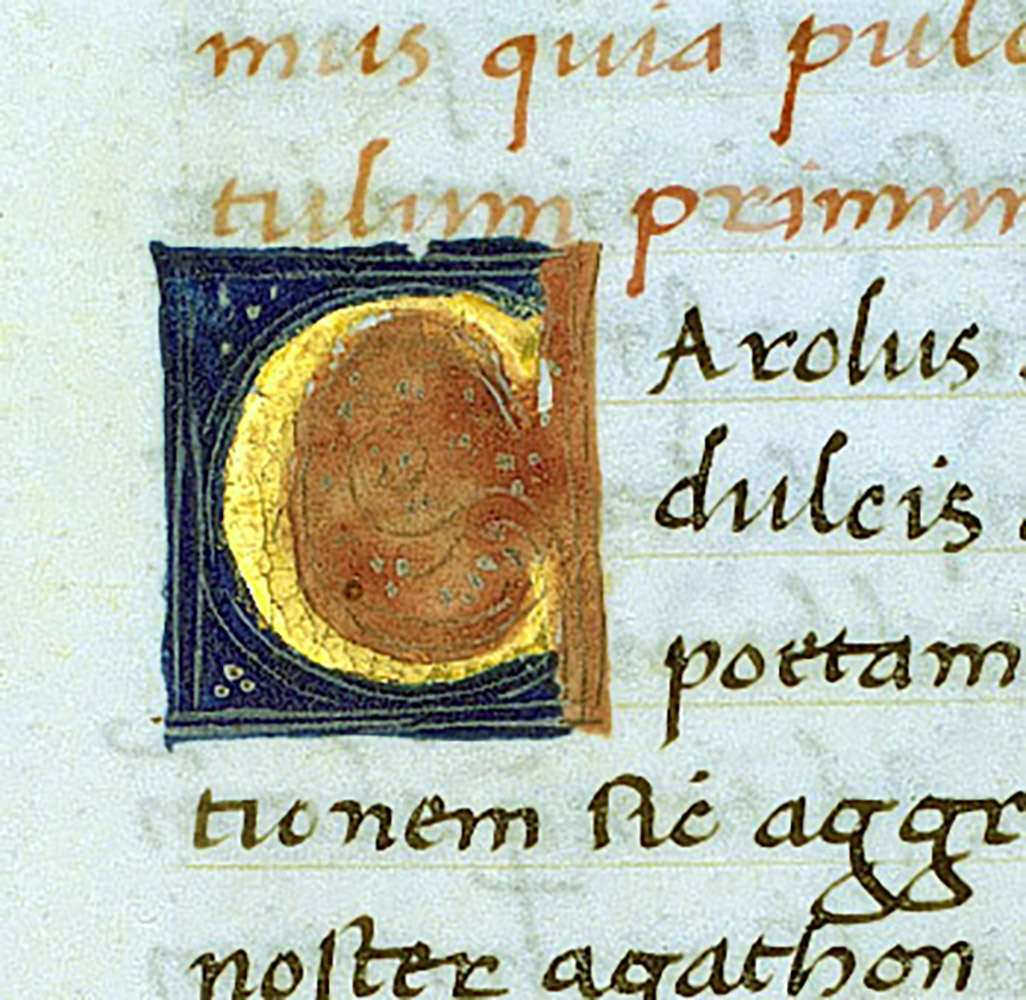 mus quia pulc
tulum primum
CArolus
dulcis
poetam
tionem sic aggr
noster agathon